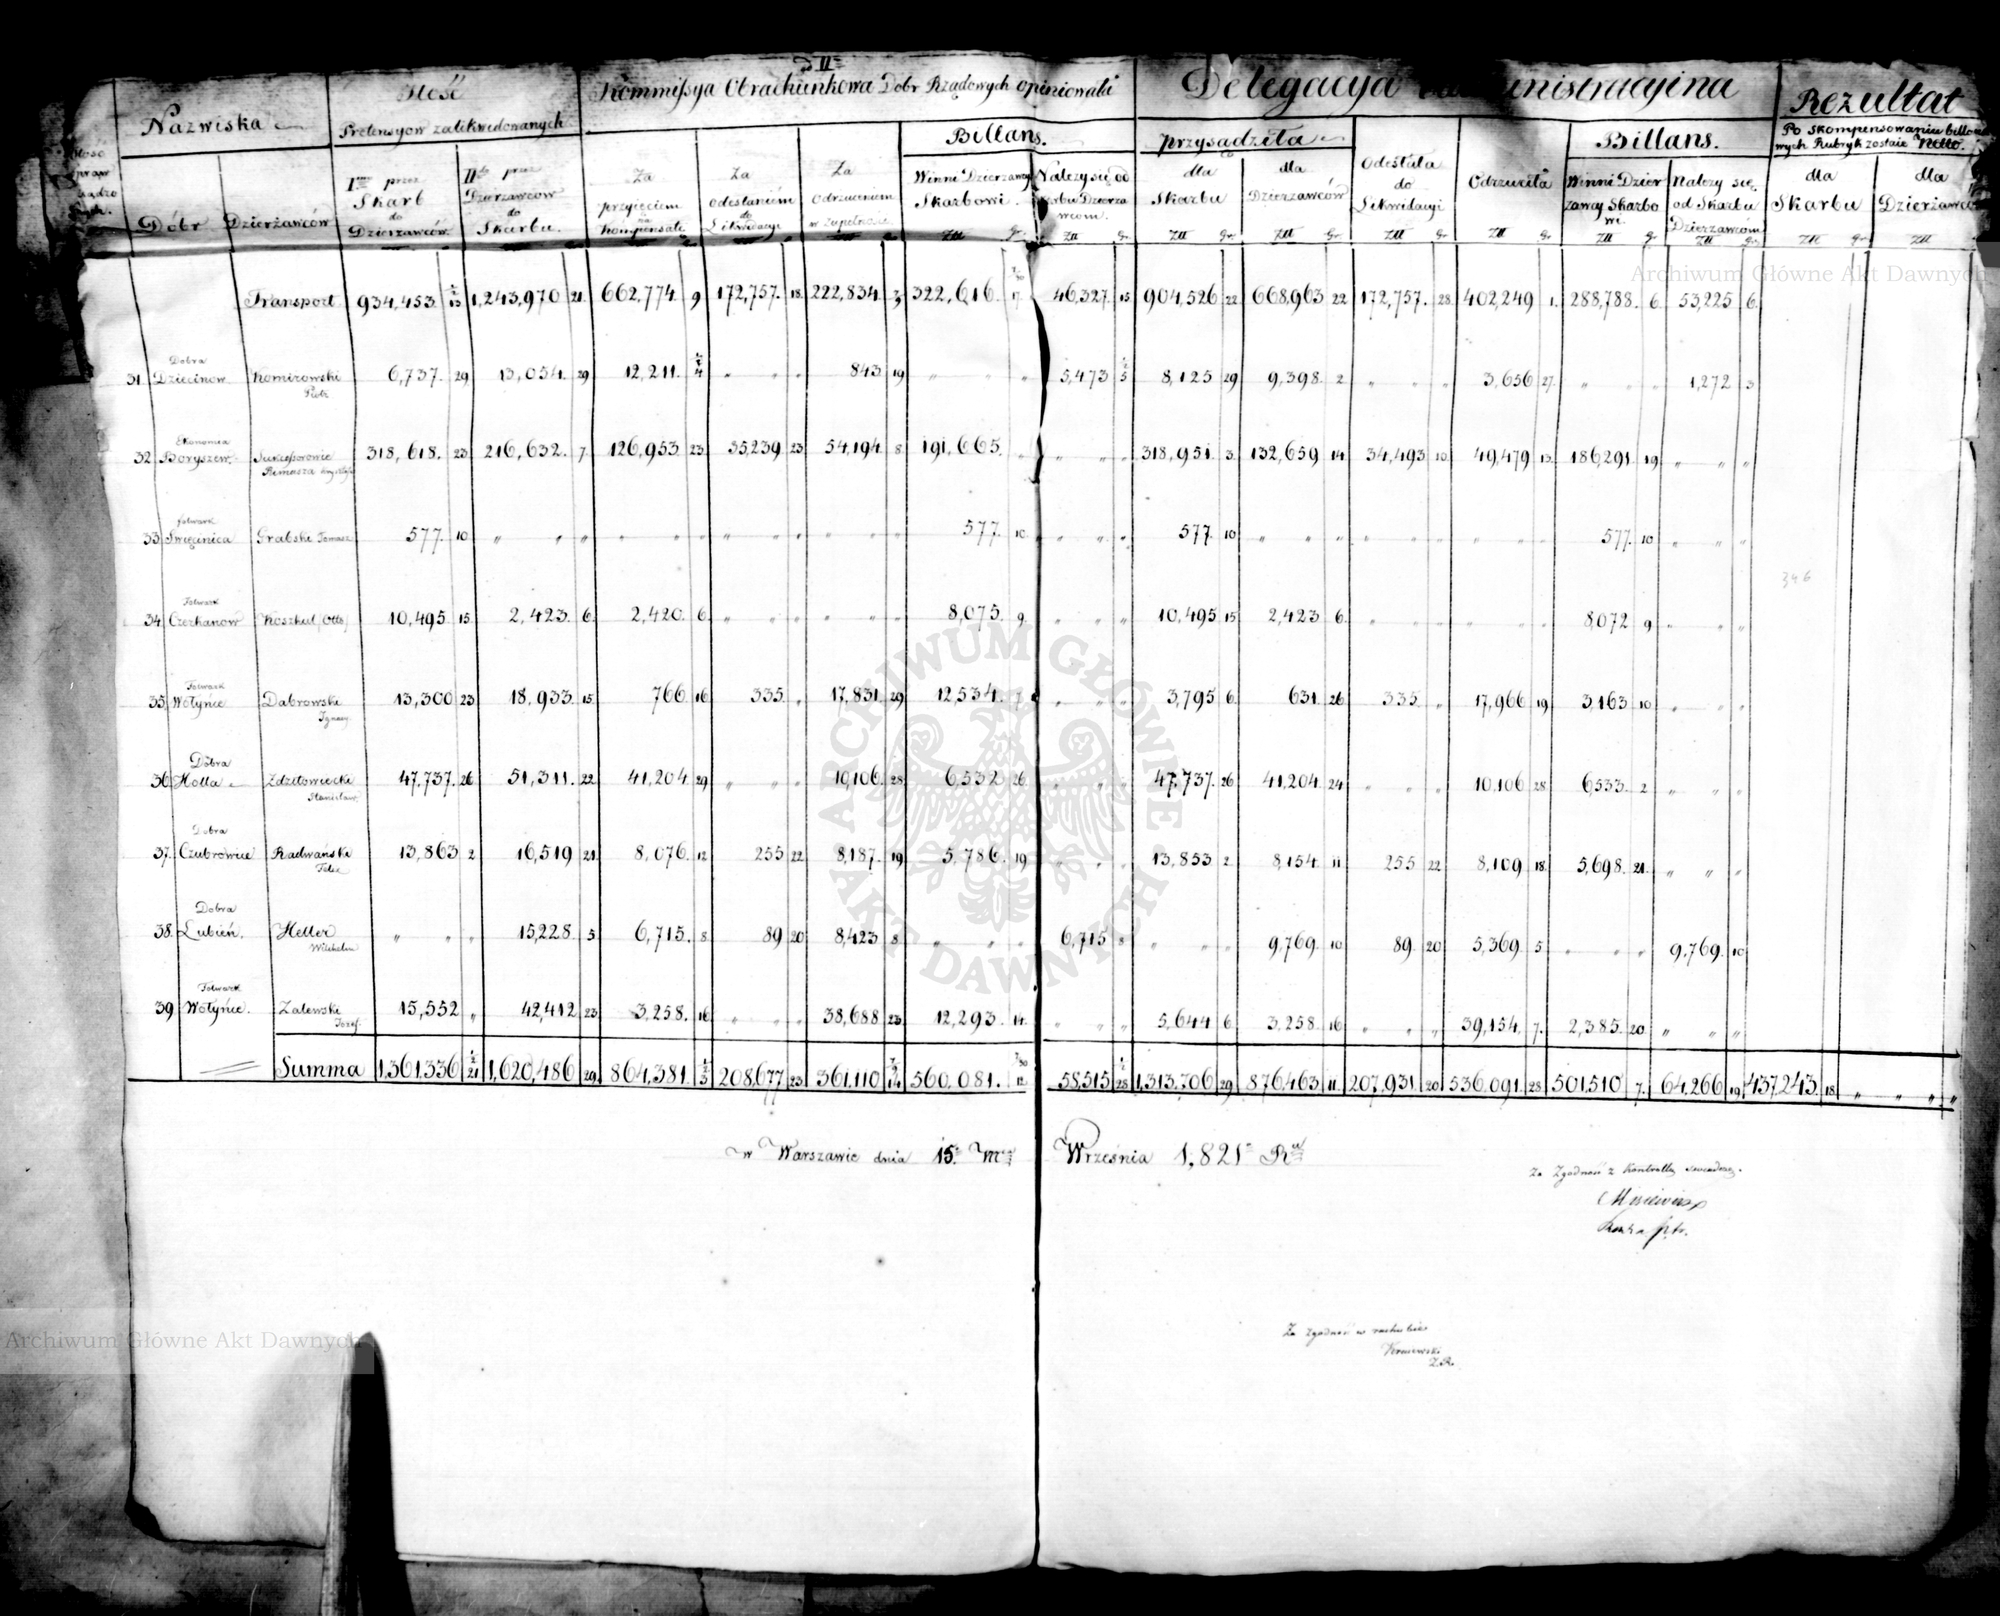 II
Ilość
Kommissya Obrachunkowa Dobr Rządowych opiniowała
Delegacya
Rezultat
Nazwiska
Pretensyow zalikwidowanych
Billans.
przysądziła
Billans.
Po skompensowaniu
wych Rubryk zostaie Netto.
Dóbr Dzierżawców
I przez Skarb do Dzierżawców
II przez Dzierzawcow do Skarbu.
Za przyięciem na kompensatę
Za odesłaniem do Likwidacyi
Za Odrzuceniem w zupełności
Winni Dzierzawcy Skarbowi.
Należy się od Skarbu Dzierzawcom.
dla Skarbu
dla Dzierżawców
Odesłała do Likwidacyi
Odrzuciła
Winni Dzierzawcy Skarbowi
Nalezy się od Skarbu Dzierzawcom
dla Skarbu
dla Dzierżawców
Złł gr. Złł gr. Złł gr. Złł gr. Złł gr. Złł gr. Złł gr. Złł gr. Złł
Transport 934,453 1/2 13 1,243,970 21. 662,774. 9 172,757. 18 222,834 3 322,616 7/30 17. 46,327. 15 904,526 22 668,963 22 172,757. 28 402,249 1. 288,788. 6 53,225 6.
31. Dobra Dziecinow Komirowski Piotr 6,737. 29 13,054. 29 12,211. 1/2 4 " " " 843 19 " " " 5,473 1/2 5 8,125 29 9,398. 2 " " " 3,656 27. " " " 1,272 3
32. Ekonomia Boryszew. Sukcessorowie 318,618. 23 216,632. 7. 126,953 23 35,239 23 54,194 8 191,665. " " " " 318,951. 3. 132,659 14 34,493 10. 49,479 13. 186,291 19 " " "
33. folwark Swięcinica Grabski Tomasz 577. 10 " " " " " " " " " " " " 577. 10 " " " 577. 10 " " " " " " " " " 577. 10 " " "
34. Folwark Czechanow Koszkul Otto 10,495. 15. 2,423. 6. 2,420. 6. " " " " " " 8,075. 9. " " " 10,495 15 2,423 6. " " " " " " 8,072 9 " " "
35. Folwark Wołyńce Dabrowski Ignacy 13,300 23 18,933. 15. 766 16 335. " 17,831. 29 12,534. 7 " " " 3,795 6. 631. 26 335 " 17,966 19 3,163 10 " " "
36. Dobra Holla Zdzitowiecki Stanisław 47,737. 26 51,311. 22 41,204 29 " " " 10,106 28 6,532 26 " " " 47,737. 26 41,204. 24 " " " 10,106 28 6,533. 2 " " "
37. Dobra Czubrowice Radwański Felix 13,863 2 16,519 21. 8,076. 12 255 22 8,187. 19 5,786. 19 " " " 13,853 2 8,154 11 255 22 8,109 18 5,698. 21. " " "
38. Dobra Lubień. Heller Wilchelm " " " 15,228 5 6,715. 8 89 20 8,423 8 " " " 6,715 8 " " " 9,769. 10 89. 20 5,369 5 " " " 9,769. 10
39. Folwark Wołyńce. Zalewski Jozef 15,552 " 42,412 23 3,258. 16 " " " 38,688 23 12,293. 14. " " " 5,644 6 3,258. 16 " " " 39,154. 7. 2,385. 20 " " "
Summa 1,361,336 1/2 21 1,620,486 29. 864,381. 1/2 3 208,677 23 361,110 14 560,081. 7/30 12 58,515 1/2 28 1,313,706 29 876,463 11. 207,931. 20 536,091. 28 501,510 7. 64,266 19 437,243. 18 " " " "
w Warszawie dnia 15. M Września 1,821 R
Za Zgodność z Kontrollą
Za Zgodność w rachubie
Z.R.
346
Archiwum Główne Akt Dawnych
ARCHIWUM GŁÓWNE AKT DAWNYCH
Archiwum Główne Akt Dawnych